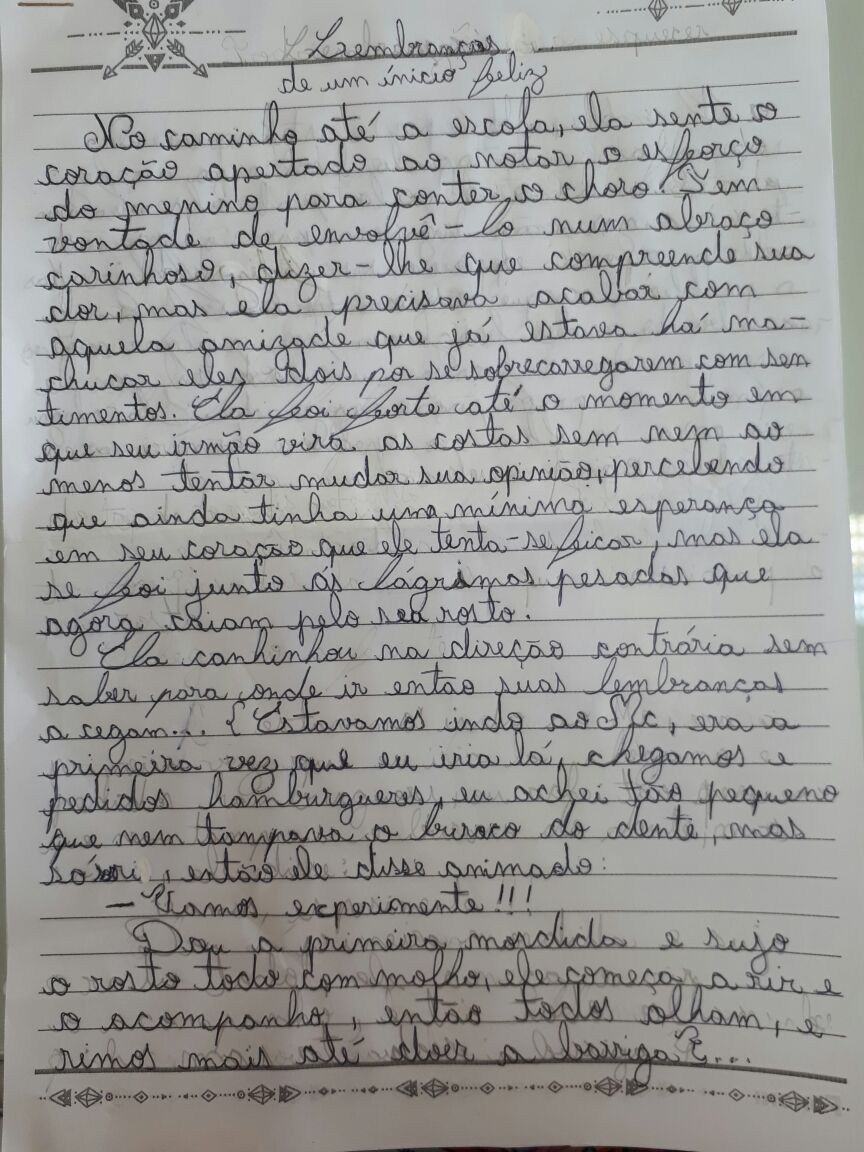 Lembranças ...
de um ínicio feliz
No caminho até a escola, ela sente o
coração apertado ao notar o esforço
do menino para conter o choro. Tem
vontade de envolvê-lo num abraço
carinhoso, dizer-lhe que compreende sua
dor, mas ela precisava acabar com
aquela amizade que já estava há ma-
chucar eles dois por se sobrecarregarem com sen
timentos. Ela foi forte até o momento em
que seu irmão vira as costas sem nem ao
menos tentar mudar sua opinião, percebendo
que ainda tinha uma mínima esperança
em seu coração que ele tenta-se ficar, mas ela
se foi junto ás lágrimas pesadas que
agora caiam pelo seu rosto.
Ela canhinhou na direção contrária sem
saber para onde ir então suas lembranças
a cegam... {Estavamos indo ao Mc, era a
primeira vez que eu iria lá, chegamos e
pedidos hambúrgueres, eu achei tão pequeno
que nem tampava o buraco do dente, mas
só ri, então ele disse animado:
- Vamos, experimente!!!
Dou a primeira mordida e sujo
o rosto todo com molho, ele começa a rir e
o acompanho, então todos olham, e
rimos mais até doer a barriga}...